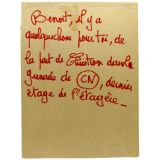 Benoit, il y a
quelquechose pour toi, de
la part de dans la
de CN, dernier
étage de l'étagère_